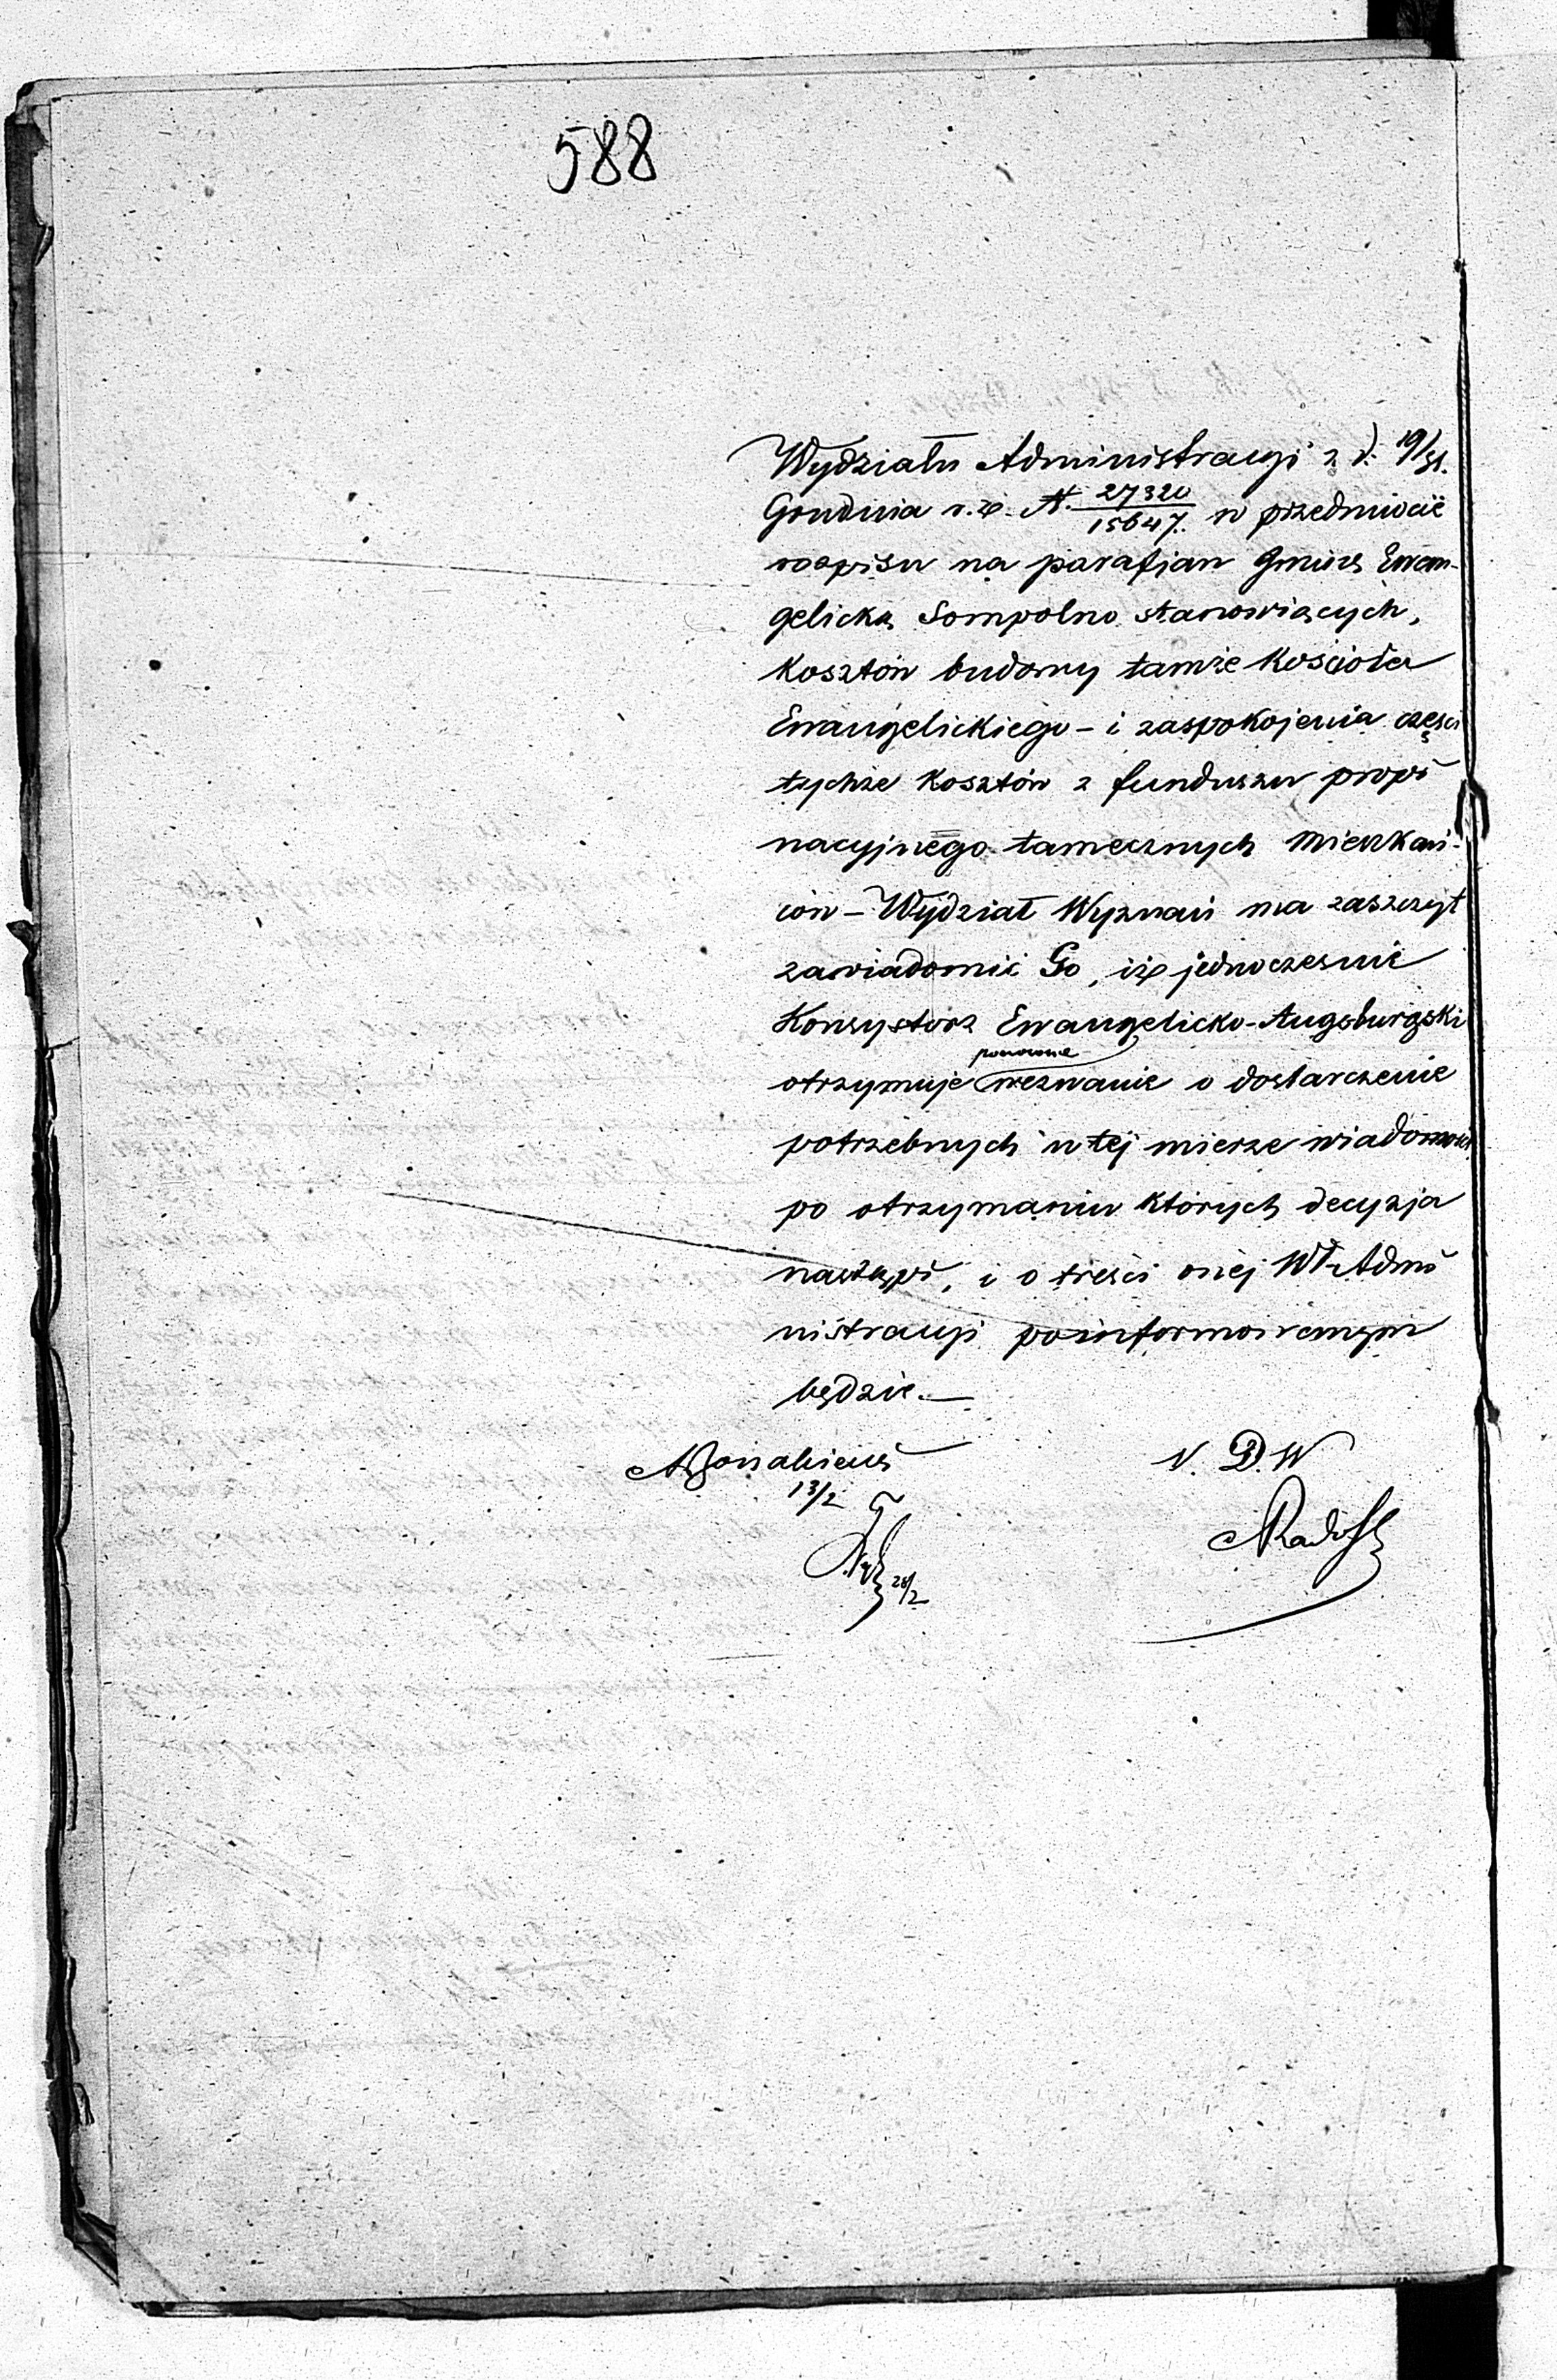 588
Wydziału Administracyi z d. 19/31.
Grudnia r. z. N. 27320/15647. w przedmiocie
rozpisu na parafjan Gminę Ewan-
gelicką Sompolno stanowiących,
kosztów budowy tamże Kościoła
Ewangelickiego – i zaspokojenia części
tychże kosztów z funduszu propi
nacyjnego tamecznych mieszkań-
ców – Wydział Wyznań ma zaszczyt
zawiadomić Go, iż jednocześnie
Konsystorz Ewangelicko-Augsburgski
ponowne
otrzymuje wezwanie o dostarczenie
potrzebnych w tej mierze wiadomości
po otrzymaniu których decyzja
nastąpi, i o treści onej Wł. Admi
nistracyi poinformowanym
będzie. —
V. D. W
13/2
28/2